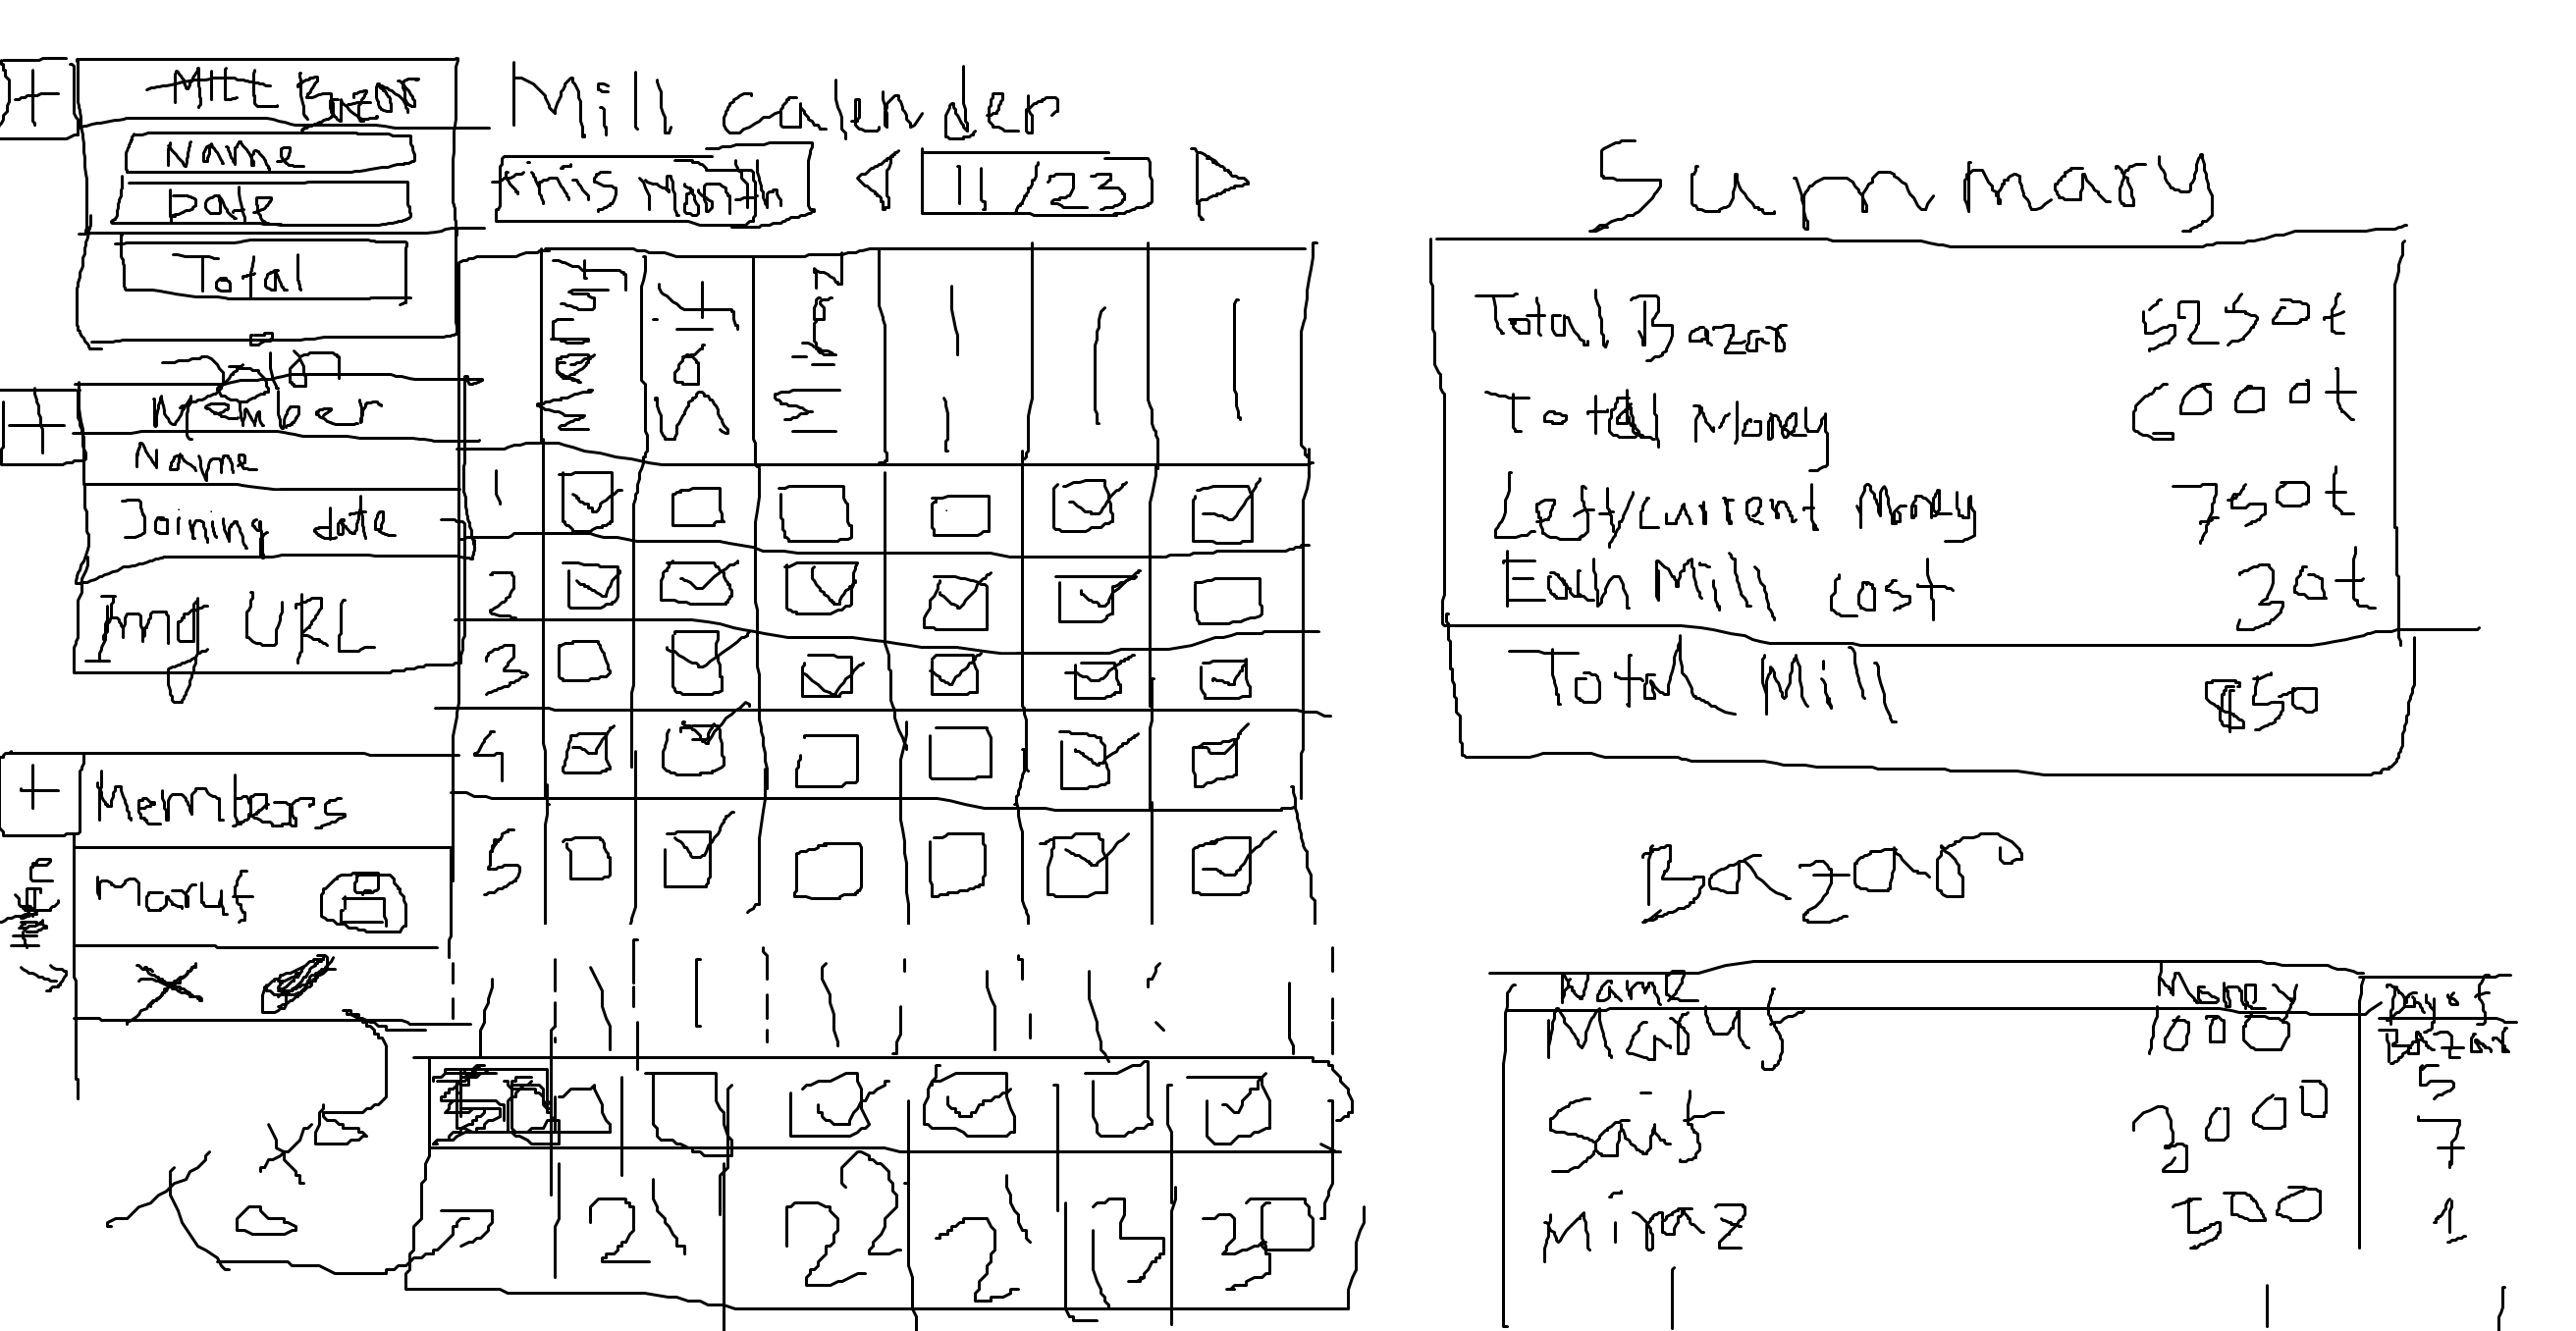 Bazar
Name
Date
Total
Member
Name
Joining date
Img URL
Members
Maruf
Mill Calender
This Month
11/23
Maruf
Saif
Miraz
1
2
3
4
5
21
22
21
13
30
Summary
Total Bazar 5250t
Total Money 6000t
Left/Current Money 750t
Each Mill cost 30t
Total Mill 850
Bazar
Name Money Days of Bazar
Maruf 1000 5
Saif 3000 7
Miraz 500 1